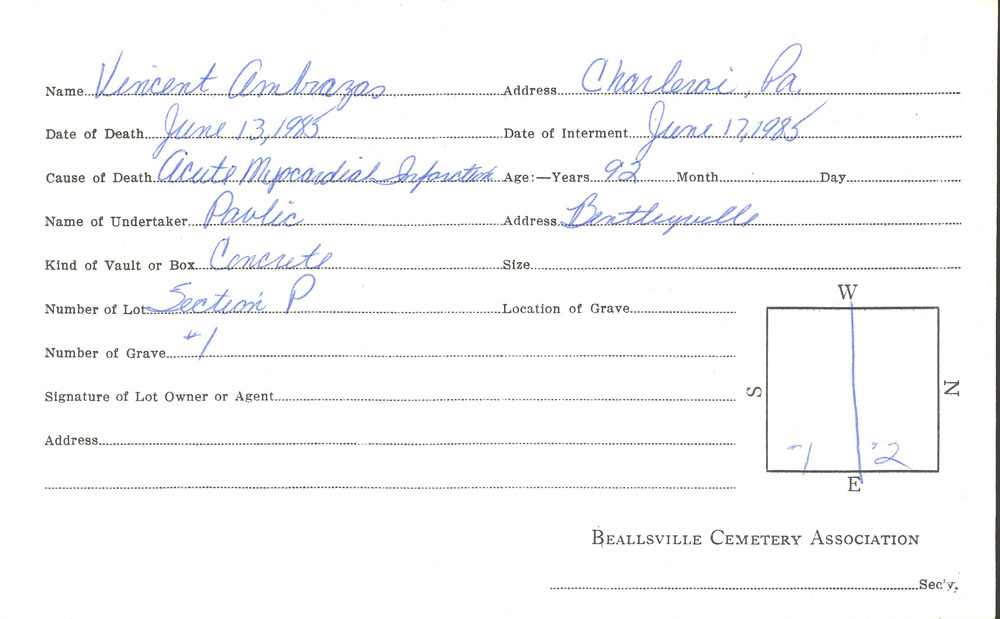 Name Vincent Ambrazas Address Charleroi, Pa.
Date of Death June 13, 1985 Date of Interment June 17, 1985
Cause of Death Acute Myocardial Infarction Age:—Years 92 Month Day
Name of Undertaker Pavlic Address Bentleyville
Kind of Vault or Box Concrete Size
Number of Lot Section P Location of Grave
W
Number of Grave #1
S N
Signature of Lot Owner or Agent
Address
#1 #2
E
BEALLSVILLE CEMETERY ASSOCIATION
Sec'y.